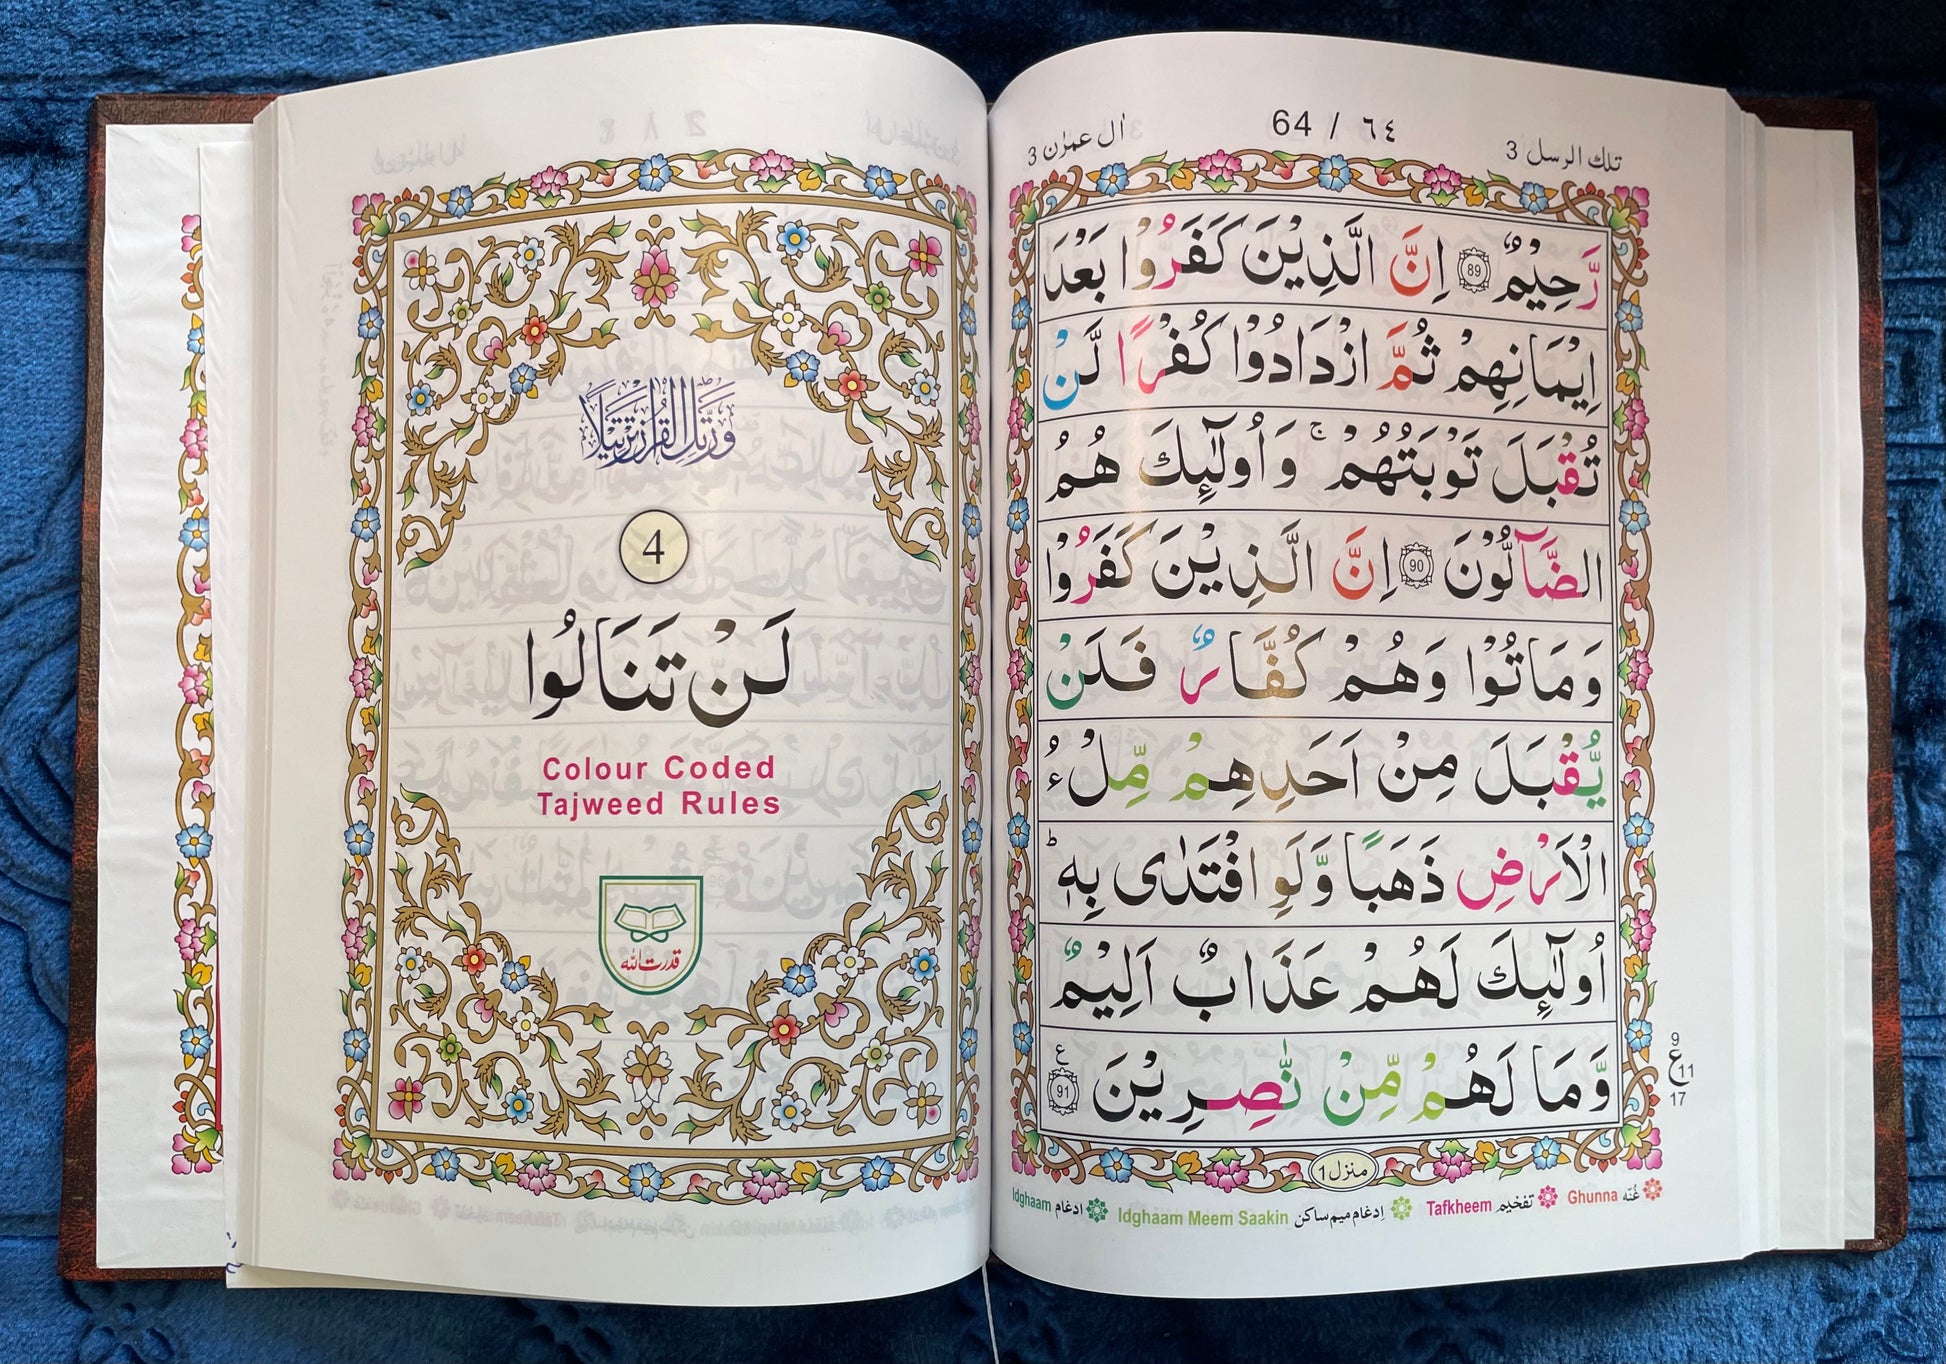 اٰل عمرٰن 3
64 / ٦٤
تلك الرسل 3
رَّحِیْمٌ 89 اِنَّ الَّذِیْنَ كَفَرُوْا بَعْدَ
اِیْمَانِهِمْ ثُمَّ ازْدَادُوْا كُفْرًا لَّنْ
تُقْبَلَ تَوْبَتُهُمْ ۚ وَاُولٰٓىِٕكَ هُمُ
الضَّآلُّوْنَ 90 اِنَّ الَّذِیْنَ كَفَرُوْا
وَمَاتُوْا وَهُمْ كُفَّارٌ فَلَنْ
یُّقْبَلَ مِنْ اَحَدِهِمْ مِّلْءُ
الْاَرْضِ ذَهَبًا وَّلَوِ افْتَدٰی بِهٖ ؕ
اُولٰٓىِٕكَ لَهُمْ عَذَابٌ اَلِیْمٌ
وَّمَا لَهُمْ مِّنْ نّٰصِرِیْنَ ع 91
9
ع 11
17
منزل 1
Ghunna غُنّه Tafkheem تفخیم Idghaam Meem Saakin اِدغام میم ساکن Idghaam ادغام
وَرَتِّلِ الْقُرْاٰنَ تَرْتِیْلًا
4
لَنْ تَنَالُوا
Colour Coded
Tajweed Rules
قدرت الله